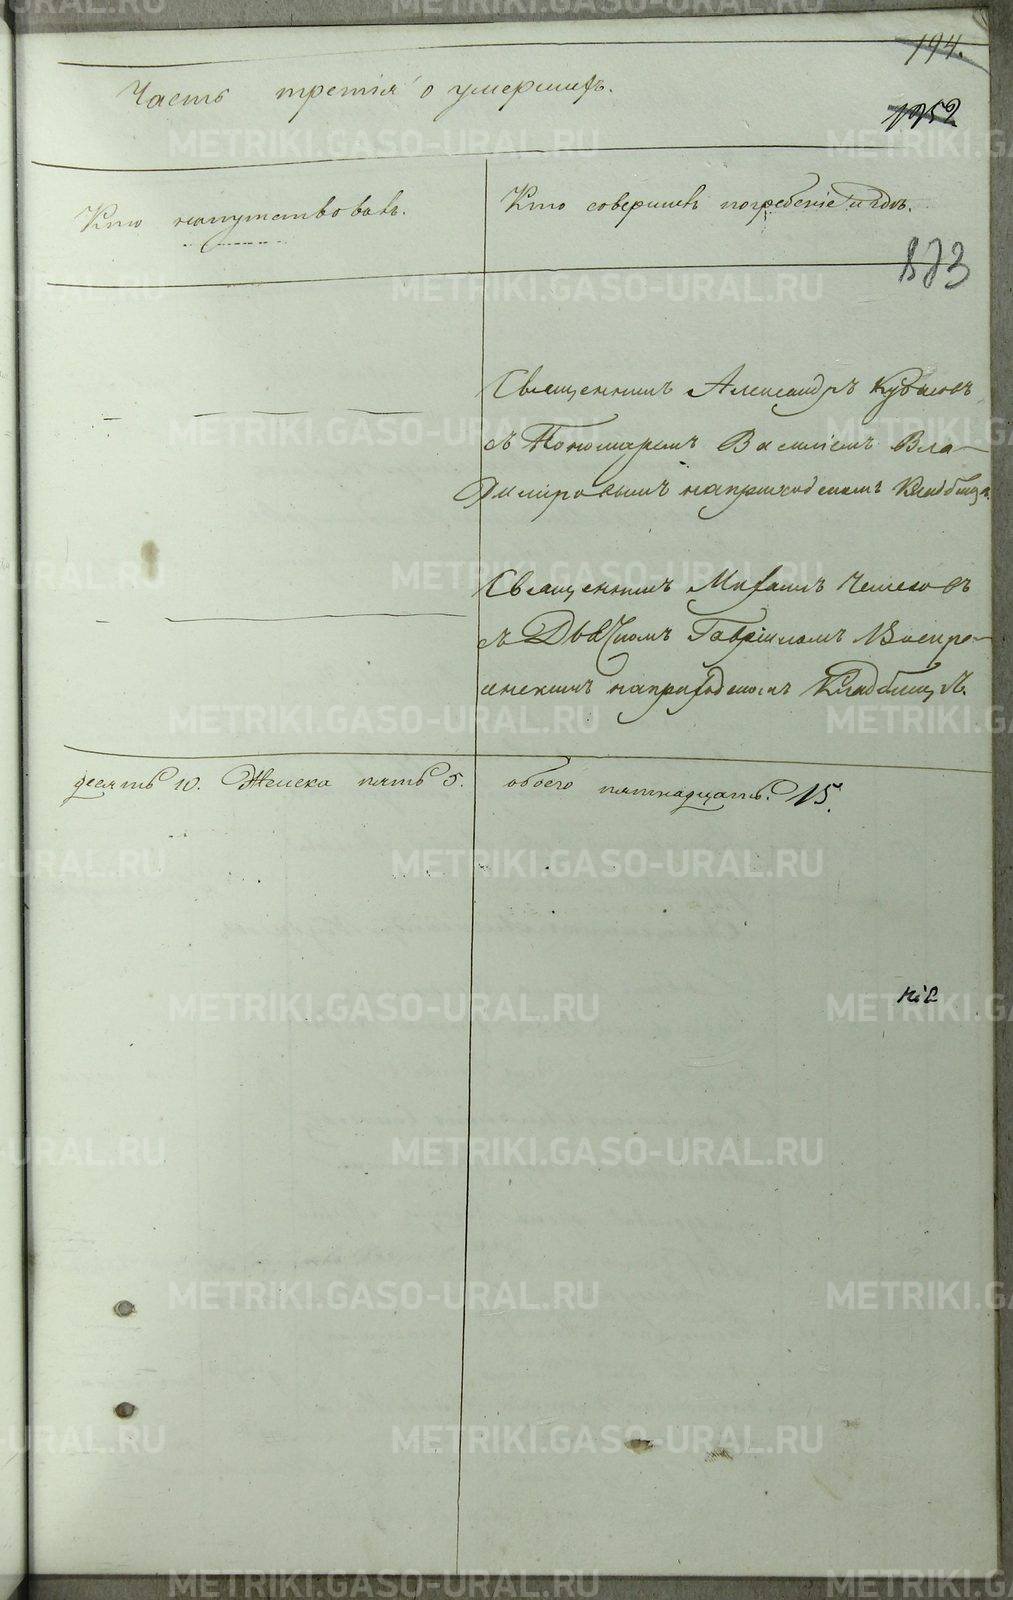 194.
Часть третія о умершихъ.
1252
Кто напутствовалъ.
Кто совершилъ погребеніе и гдѣ.
873
Священникъ Александръ Кубасовъ
съ Пономаремъ Василіемъ Вла-
диміровымъ на приходскомъ Кладбищѣ.
Священникъ Михаилъ
съ Дьячкомъ Гавріиломъ Воскре-
сенскимъ на приходскомъ Кладбищѣ.
десять 10. Женска пять 5. обоего пятнадцать. 15.
METRIKI.GASO-URAL.RU